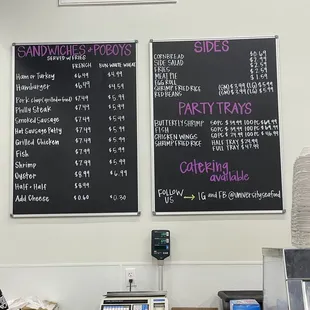 SANDWICHES & POBOYS
SERVED W/ FRIES
FRENCH BUN WHITE WHEAT
Ham or Turkey $6.49 $4.99
Hamburger $6.49 $4.99
Pork chop (grilled or fried) $7.49 $5.99
Philly Steak $7.49 $5.99
Smoked Sausage $7.49 $5.99
Hot Sausage Patty $7.49 $5.99
Grilled Chicken $7.49 $5.99
Fish $7.49 $5.99
Shrimp $7.99 $5.99
Oyster $8.99 $6.99
Half & Half $8.99
Add Cheese $0.60 $0.30
SIDES
CORNBREAD $0.69
SIDE SALAD $2.99
FRIES $2.99
MEAT PIE $2.59
EGG ROLL $1.59
SHRIMP FRIED RICE
RED BEANS
PARTY TRAYS
BUTTERFLY SHRIMP 50PC 100PC
FISH 50PC 100PC
CHICKEN WINGS 50PC 100PC
SHRIMP FRIED RICE HALF TRAY $24.99
FULL TRAY $47.99
Catering
available
FOLLOW
US → IG and FB @universityseafood